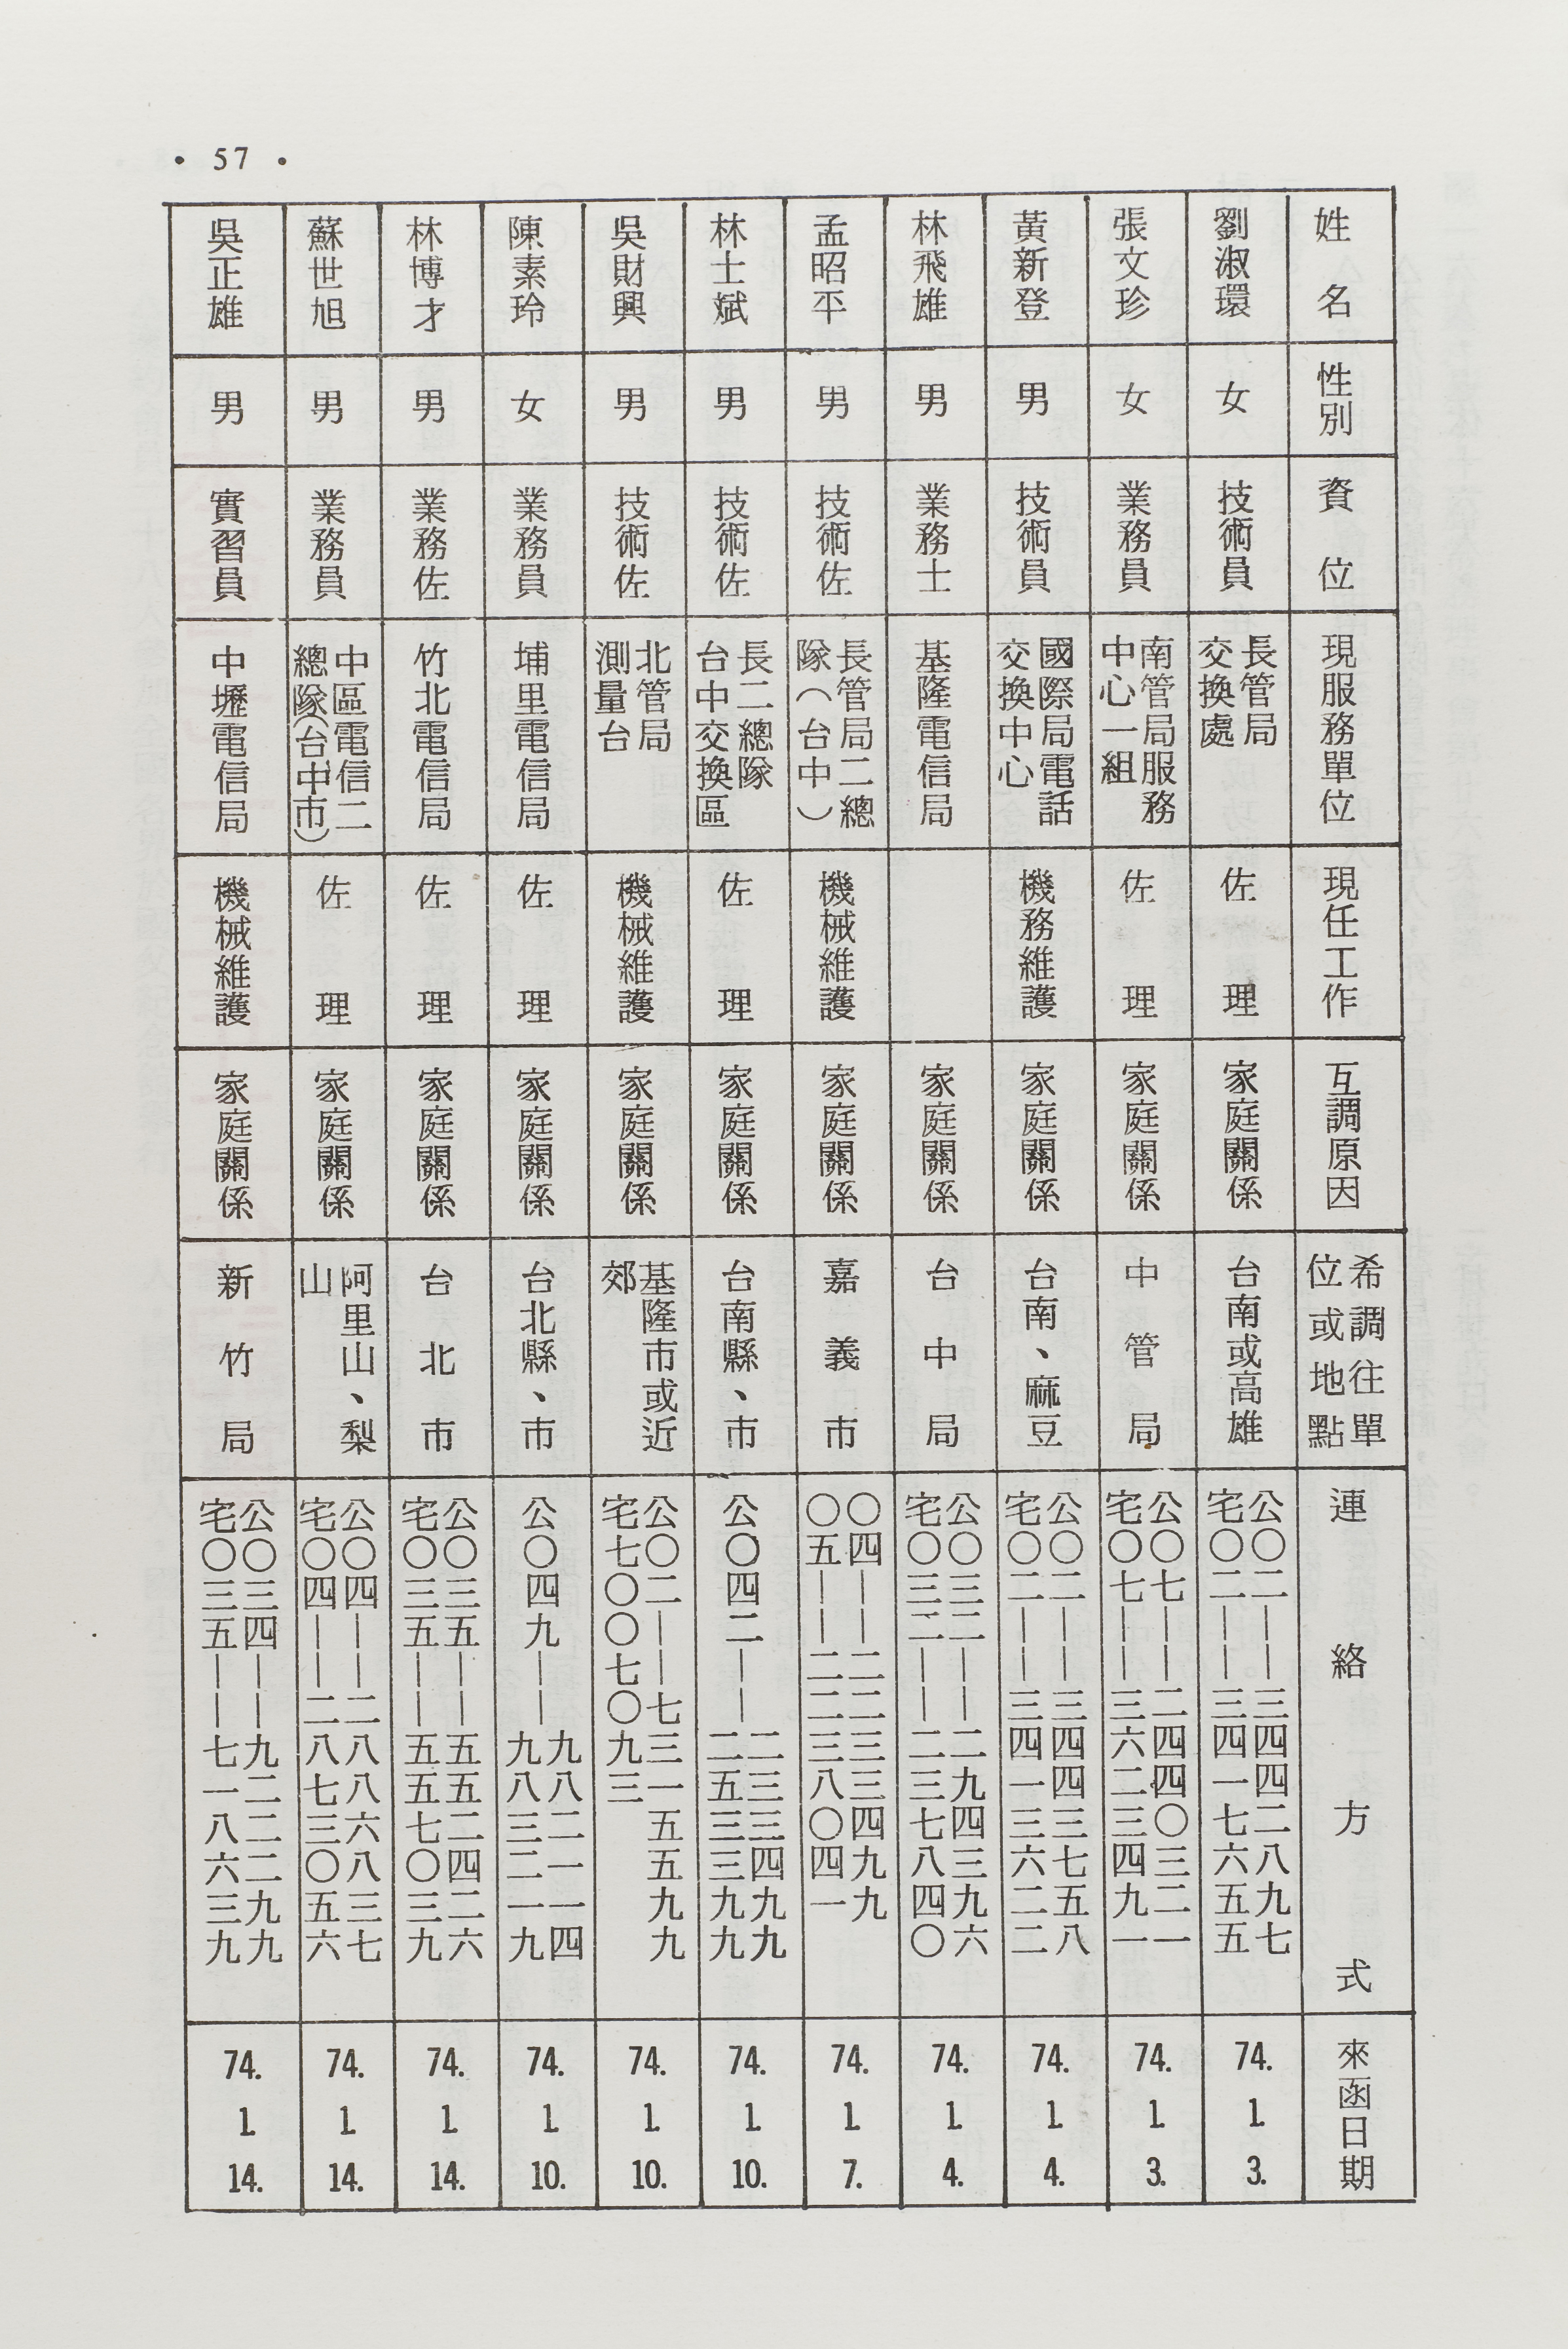 • 57 •
姓名
性別
資位
現服務單位
現任工作
互調原因
希調往單
位或地點
連絡方式
來函日期
劉淑環
女
技術員
長管局
交換處
佐理
家庭關係
台南或高雄
公〇二——三四四二八九七
宅〇二——三四一七六五五
74. 1. 3.
張文珍
女
業務員
南管局服務
中心一組
佐理
家庭關係
中管局
公〇七——二四四〇三二一
宅〇七——三六二三四九一
74. 1. 3.
黃新登
男
技術員
國際局電話
交換中心
機務維護
家庭關係
台南、麻豆
公〇二——三四四三七五八
宅〇二——三四一三六二二
74. 1. 4.
林飛雄
男
業務士
基隆電信局
家庭關係
台中局
公〇三二——二九四三九六
宅〇三二——二三七八四〇
74. 1. 4.
孟昭平
男
技術佐
長管局二總
隊(台中)
機械維護
家庭關係
嘉義市
〇四——二二三三四九九
〇五——二二三八〇四一
74. 1. 7.
林士斌
男
技術佐
長二總隊
台中交換區
佐理
家庭關係
台南縣、市
公〇四二——二三三四九九
二五三三九九
74. 1. 10.
吳財興
男
技術佐
北管局
測量台
機械維護
家庭關係
基隆市或近
郊
公〇二——七三一五五九九
宅七〇〇七〇九三
74. 1. 10.
陳素玲
女
業務員
埔里電信局
佐理
家庭關係
台北縣、市
公〇四九——九八二一一四
九八三二一九
74. 1. 10.
林博才
男
業務佐
竹北電信局
佐理
家庭關係
台北市
公〇三五——五五二四二六
宅〇三五——五五七〇三九
74. 1. 14.
蘇世旭
男
業務員
中區電信二
總隊(台中市)
佐理
家庭關係
阿里山、梨
山
公〇四——二八八六八三七
宅〇四——二八七三〇五六
74. 1. 14.
吳正雄
男
實習員
中壢電信局
機械維護
家庭關係
新竹局
公〇三四——九二二二九九
宅〇三五——七一八六三九
74. 1. 14.